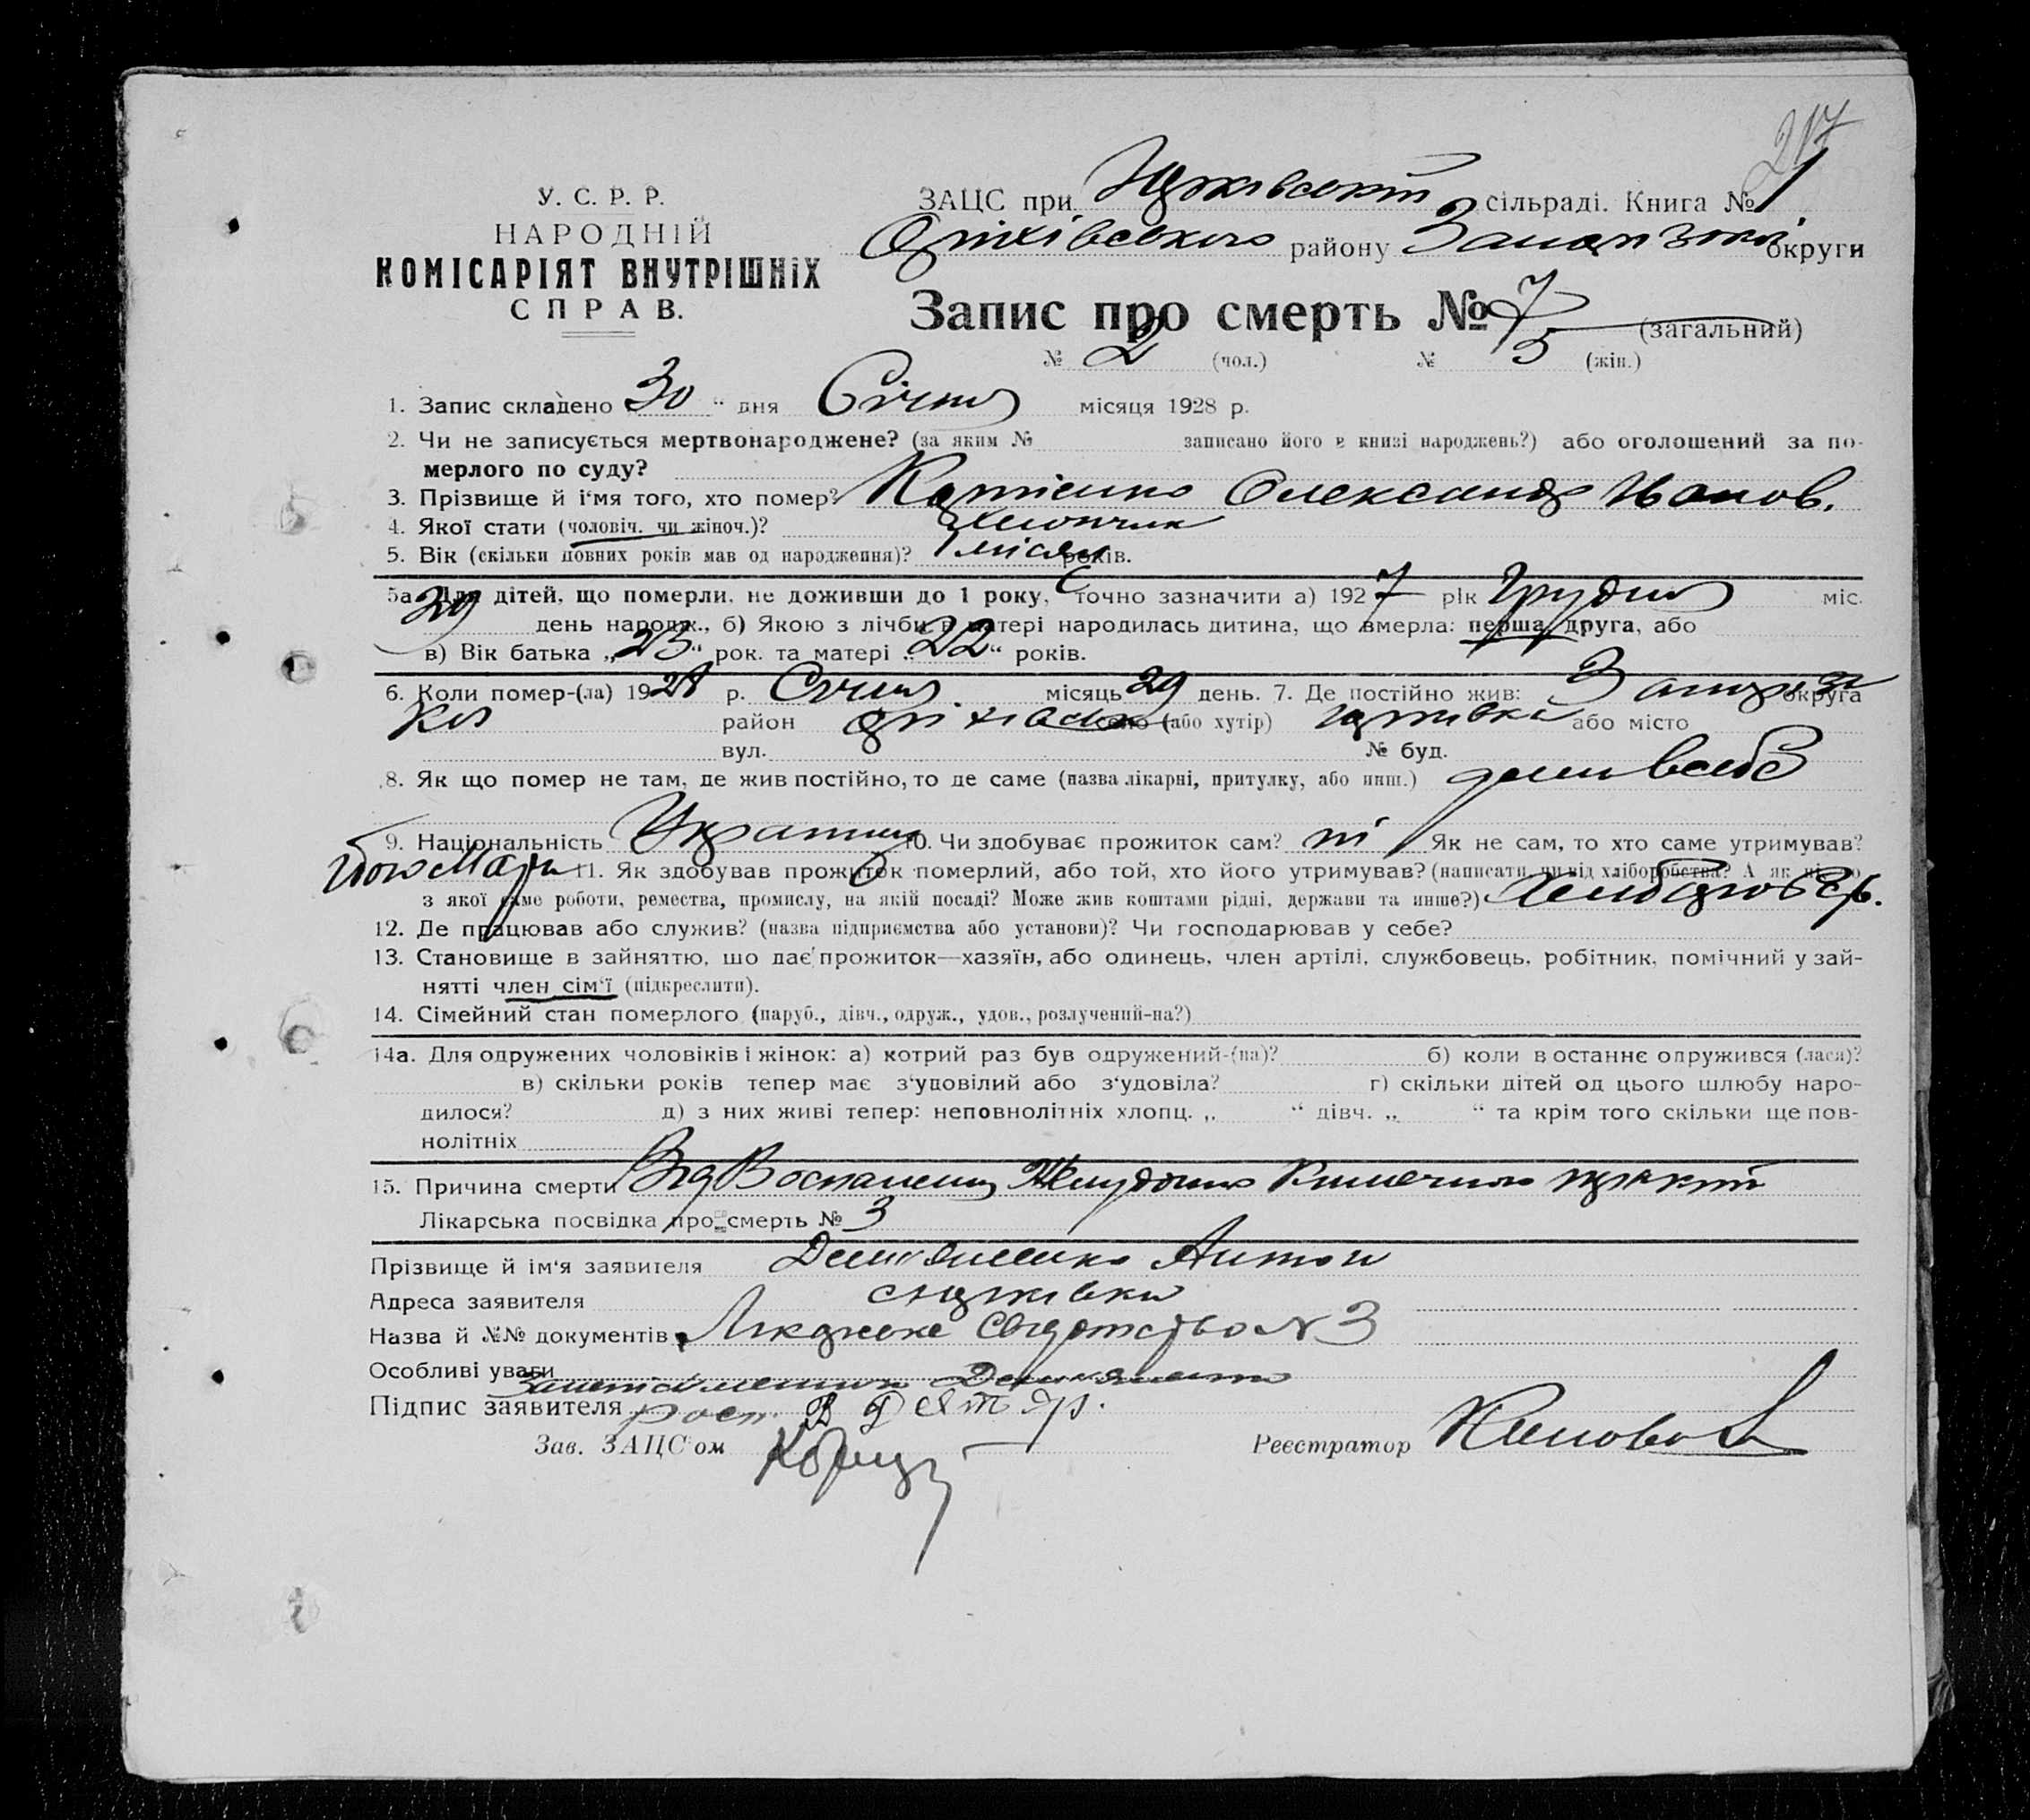 217
У. С. Р. Р.
НАРОДНІЙ
КОМІСАРІЯТ ВНУТРІШНІХ
СПРАВ.
ЗАЦС при сільраді. Книга № 1
Оріхівського району Запорізької округи
Запис про смерть № 7 (загальний)
№ 2 (чол.) № 5 (жін.)
1. Запис складено 30 “ дня Січня місяця 1928 р.
2. Чи не записується мертвонароджене? (за яким № записано його в книзі народжень?) або оголошений за по-
мерлого по суду?
3. Прізвище й і'мя того, хто помер? Олександр Иванов.
4. Якої стати (чоловіч. чи жіноч.)? Хлопчик
5. Вік (скільки повних років мав од народження)? 1 місяц років.
5а. Для дітей, що померли, не доживши до 1 року, точно зазначити а) 1927 рік Грудня міс.
29 день народж., б) Якою з лічби в матері народилась дитина, що вмерла: перша, друга, або
в) Вік батька „23“ рок. та матері „22“ років.
6. Коли помер-(ла) 1928 р. Січня місяць 29 день. 7. Де постійно жив: Запоріз округа
ка район Оріхівськ село (або хутір) або місто
вул. № буд.
8. Як що помер не там, де жив постійно, то де саме (назва лікарні, притулку, або инш.)
9. Національність Українец 10. Чи здобуває прожиток сам? ні Як не сам, то хто саме утримував?
11. Як здобував прожиток померлий, або той, хто його утримував? (написати, чи від хліборобства? А як ні, то
з якої саме роботи, ремества, промислу, на якій посаді? Може жив коштами рідні, держави та инше?) Хлиборобств.
12. Де працював або служив? (назва підприємства або установи)? Чи господарював у себе?
13. Становище в зайняттю, що дає прожиток—хазяїн, або одинець, член артілі, службовець, робітник, помічний у зай-
нятті член сім'ї (підкреслити).
14. Сімейний стан померлого (паруб., дівч., одруж., удов., розлучений-на?)
14а. Для одружених чоловіків і жінок: а) котрий раз був одружений-(на)? б) коли востаннє одружився (лася)?
в) скільки років тепер має з'удовілий або з'удовіла? г) скільки дітей од цього шлюбу наро-
дилося? д) з них живі тепер: неповнолітніх хлопц. „ “ дівч. „ “ та крім того скільки ще пов-
нолітніх
15. Причина смерти Від Воспаления Желудочно Кишечного
Лікарська посвідка про смерть № 3
Прізвище й ім'я заявителя Антон
Адреса заявителя
Назва й №№ документів № 3
Особливі уваги
Підпис заявителя
Зав. ЗАЦС'ом
Реєстратор